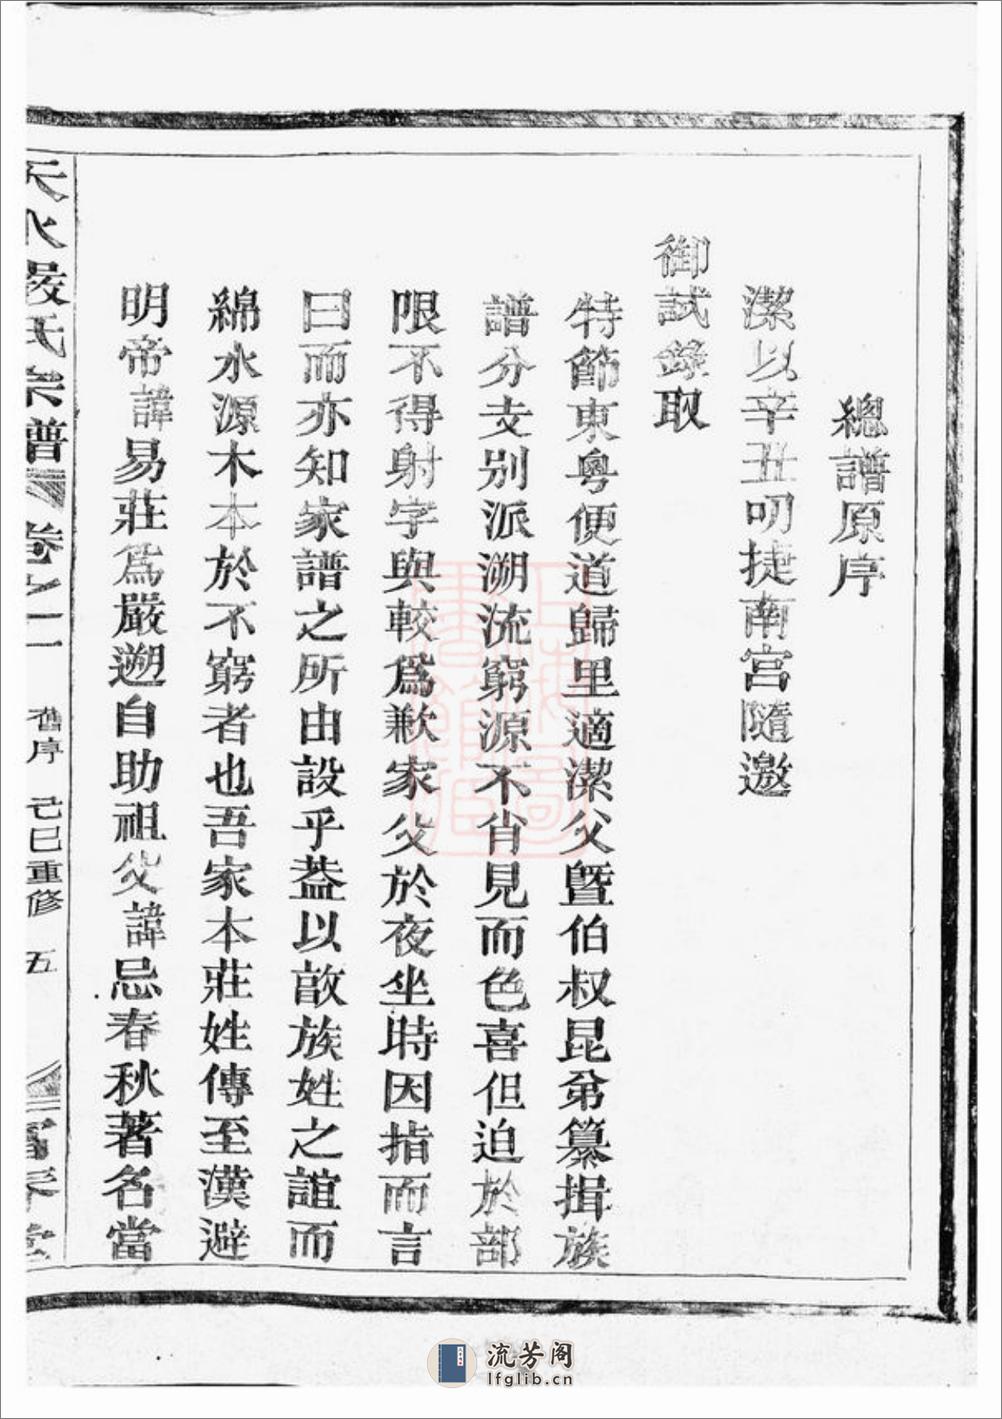 總譜原序
潔以辛丑叨捷南宮隨邀
御試錄取
特節東粵便道歸里適潔父暨伯叔昆弟纂揖族
譜分支別派溯流窮源不肖見而色喜但迫於部
限不得躬字與較為歉家父於夜坐時因指而言
曰而亦知家譜之所由設乎葢以敵族姓之誼而
綿水源木本於不窮者也吾家本莊姓傳至漢避
明帝諱易莊為嚴遡自助祖父諱忌春秋著名當
天水嚴氏宗譜 卷之二 舊序 己巳重修 五
上海圖書館藏
流芳阁
lfglib.cn